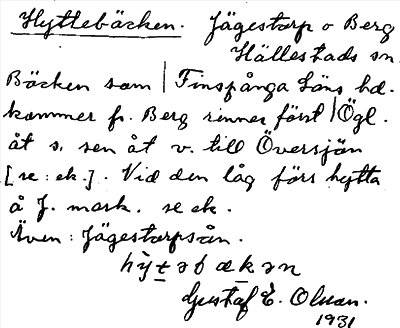 Hyttebäcken. Jägestorp o Berg
Hällestads sn.
Bäcken som | Finspånga Läns hd.
kommer fr. Berg rinner först | Ögl.
åt s. sen åt v. till Översjön
[se: ek.]. Vid den låg förr hytta
å J. mark. se ek.
Även: Jägestorpsån.
hỳtəbækən
Gustaf E. Olsson.
1931